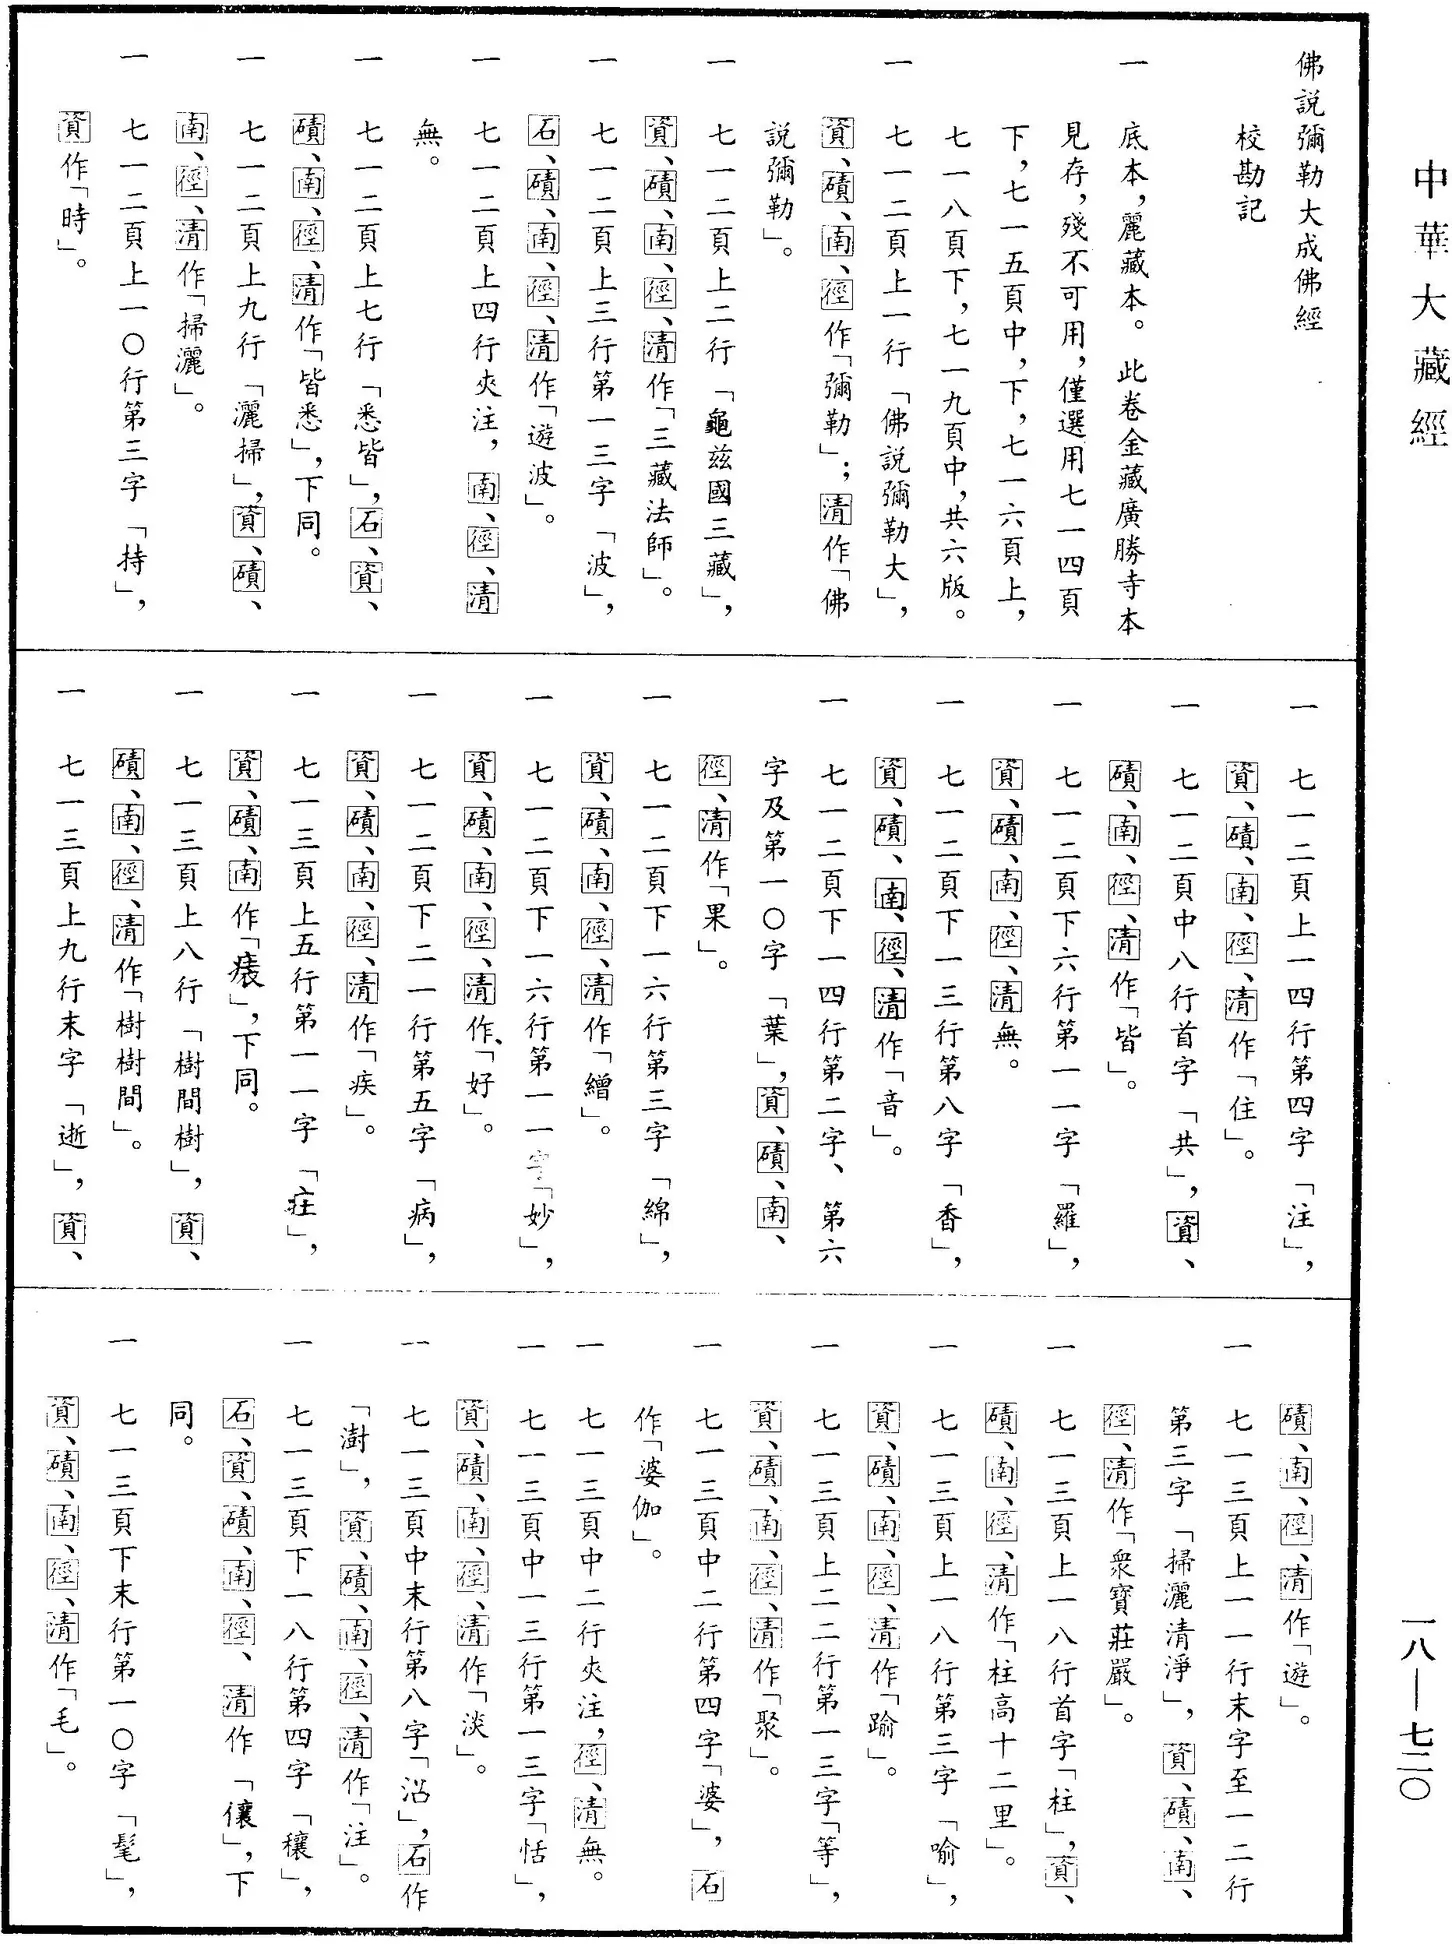 中華大藏經
佛說彌勒大成佛經
校勘記
一 底本,麗藏本。此卷金藏廣勝寺本
見存,殘不可用,僅選用七一四頁
下,七一五頁中,下,七一六頁上,
七一八頁下,七一九頁中,共六版。
一 七一二頁上一行「佛說彌勒大」,
資、磧、南、徑作「彌勒」;清作「佛
說彌勒」。
一 七一二頁上二行「龜茲國三藏」,
資、磧、南、徑、清作「三藏法師」。
一 七一二頁上三行第一三字「波」,
石、磧、南、徑、清作「遊波」。
一 七一二頁上四行夾注,南、徑、清
無。
一 七一二頁上七行「悉皆」,石、資、
磧、南、徑、清作「皆悉」,下同。
一 七一二頁上九行「灑掃」,資、磧、
南、徑、清作「掃灑」。
一 七一二頁上一〇行第三字「持」,
資作「時」。
一 七一二頁上一四行第四字「注」,
資、磧、南、徑、清作「住」。
一 七一二頁中八行首字「共」,資、
磧、南、徑、清作「皆」。
一 七一二頁下六行第一一字「羅」,
資、磧、南、徑、清無。
一 七一二頁下一三行第八字「香」,
資、磧、南、徑、清作「音」。
一 七一二頁下一四行第二字、第六
字及第一〇字「葉」,資、磧、南、
徑、清作「果」。
一 七一二頁下一六行第三字「綿」,
資、磧、南、徑、清作「繒」。
一 七一二頁下一六行第一一字「妙」,
資、磧、南、徑、清作「好」。
一 七一二頁下二一行第五字「病」,
資、磧、南、徑、清作「疾」。
一 七一三頁上五行第一一字「㽵」,
資、磧、南作「㾗」,下同。
一 七一三頁上八行「樹間樹」,資、
磧、南、徑、清作「樹樹間」。
一 七一三頁上九行末字「逝」,資、
磧、南、徑、清作「遊」。
一 七一三頁上一一行末字至一二行
第三字「掃灑清淨」,資、磧、南、
徑、清作「衆寶莊嚴」。
一 七一三頁上一八行首字「柱」,資、
磧、南、徑、清作「柱高十二里」。
一 七一三頁上一八行第三字「喻」,
資、磧、南、徑、清作「踰」。
一 七一三頁上二二行第一三字「等」,
資、磧、南、徑、清作「聚」。
一 七一三頁中二行第四字「婆」,石
作「婆伽」。
一 七一三頁中二行夾注,徑、清無。
一 七一三頁中一三行第一三字「恬」,
資、磧、南、徑、清作「淡」。
一 七一三頁中末行第八字「沿」,石作
「澍」,資、磧、南、徑、清作「注」。
一 七一三頁下一八行第四字「穰」,
石、資、磧、南、徑、清作「儴」,下
同。
一 七一三頁下末行第一〇字「髦」,
資、磧、南、徑、清作「毛」。
一八—七二〇